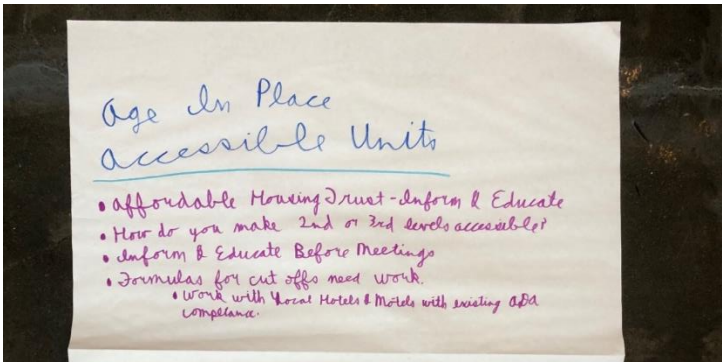 Age In Place
Accessible Units
• Affordable Housing Trust - Inform & Educate
• How do you make 2nd or 3rd levels accessible?
• Inform & Educate Before Meetings
• Formulas for cut offs need work.
• Work with Local Hotels & Motels with existing ADA
compliance.